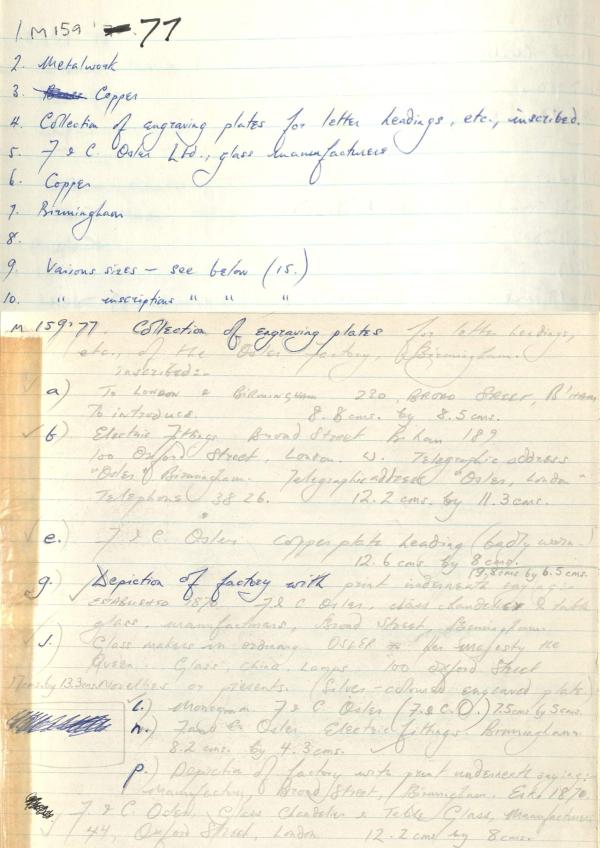 1. M 159'77
2. Metalwork
3. Copper
4. Collection of engraving plates for letter headings, etc., inscribed.
5. F & C. Osler Ltd., glass manufacturers
6. Copper
7. Birmingham
8.
9. Various sizes - see below (15.)
10. " inscriptions " " "
M 159'77. Collection of engraving plates for letter headings,
etc., of the Osler factory, Birmingham.
inscribed:-
a) To LONDON & BIRMINGHAM 230, BROAD STREET, B'HAM
To introduce. 8.8 cms. by 8.5 cms.
b) Electric Fittings Broad Street B'ham 189
100 Oxford Street, London. W. Telegraphic address
"Osler" Birmingham. Telegraphic address "Osler, London"
Telephone 3826. 12.2 cms. by 11.3 cms.
e.) F & C. Osler copper plate heading (badly worn.)
12.6 cms by 8 cms.
g.) Depiction of factory with print underneath saying:-
by 6.5 cms.
ESTABLISHED 1870. F & C Osler, glass chandelier & table
glass, manufacturers, Broad Street, Birmingham.
j.) Glass makers in ordinary OSLER to her majesty the
Queen. Glass, china, Lamps 100 Oxford Street
17 cms by 13.3 cms Novelties or presents. (Silver-coloured engraved plate)
l.) Monogram F & C Osler (F.& C.O.) 7.5 cms by 5 cms.
n.) F and C Osler Electric fittings. Birmingham
8.2 cms. by 4.3 cms.
p.) Depiction of factory with print underneath saying:-
Manufactory, Broad Street, Birmingham. Estd 1870.
F. & C Osler, Glass Chandelier & Table Glass, Manufacturers
44, Oxford Street, London. 12.2 cms by 8 cms.